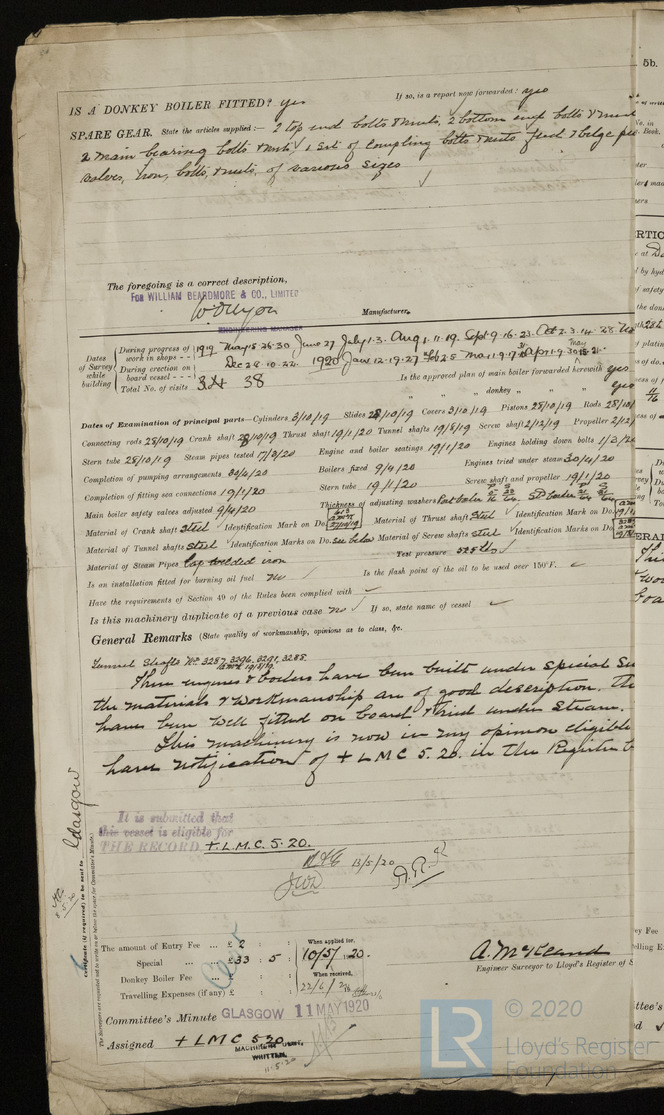 IS A DONKEY BOILER FITTED? yes
If so, is a report now forwarded? yes
SPARE GEAR. State the articles supplied:— 2 top end bolts & nuts, 2 bottom end bolts & nuts
2 main bearing bolts & nuts, 1 set of coupling bolts & nuts, feed & bilge
valves, iron, bolts, & nuts, of various sizes
The foregoing is a correct description,
FOR WILLIAM BEARDMORE & CO., LIMITED
Manufacturer.
ENGINEERING MANAGER
Dates of Survey while building
During progress of work in shops - - 1919 May 15.26.30 June 27 July 1.3. Aug 1.11.19. Sept 9.16.23. Oct 2.3.14.28.
During erection on board vessel - - - Dec 2.8.10.22. 1920 Jan 12.19.27 Feb 25 Mar 1.9.17 Apr 1.9.30 May
Total No. of visits 38
Is the approved plan of main boiler forwarded herewith yes
" " " donkey " " yes
Dates of Examination of principal parts—Cylinders 3/10/19 Slides 28/10/19 Covers 3/10/19 Pistons 28/10/19 Rods 28/10/
Connecting rods 28/10/19 Crank shaft 28/10/19 Thrust shaft 19/1/20 Tunnel shafts 19/8/19 Screw shaft 2/12/19 Propeller 2/12/
Stern tube 28/10/19 Steam pipes tested 17/3/20 Engine and boiler seatings 19/1/20 Engines holding down bolts 1/3/20
Completion of pumping arrangements 30/4/20 Boilers fixed 9/4/20 Engines tried under steam 30/4/20
Completion of fitting sea connections 19/1/20 Stern tube 19/1/20 Screw shaft and propeller 19/1/20
Main boiler safety valves adjusted 9/4/20 Thickness of adjusting washers
Material of Crank shaft Steel Identification Mark on Do. Material of Thrust shaft Steel Identification Mark on Do.
Material of Tunnel shafts Steel Identification Marks on Do. see below Material of Screw shafts Steel Identification Marks on Do.
Material of Steam Pipes Lap welded iron Test pressure 525 lbs
Is an installation fitted for burning oil fuel no Is the flash point of the oil to be used over 150°F.
Have the requirements of Section 49 of the Rules been complied with
Is this machinery duplicate of a previous case no If so, state name of vessel
General Remarks (State quality of workmanship, opinions as to class, &c.
Tunnel Shafts No. 3287, 3296, 3291, 3285
These engines & boilers have been built under Special
the materials & workmanship are of good description. The
have been well fitted on board & tried under steam.
This machinery is now in my opinion eligible
have notification of + LMC 5.20. in the Register
It is submitted that
this vessel is eligible for
THE RECORD. + L.M.C. 5.20.
13/5/20
Glasgow
Certificate (if required) to be sent to
The Surveyors are requested not to write on or below the space for Committee's Minute.
The amount of Entry Fee ... £ 2 : :
Special ... £ 33 : 5 :
Donkey Boiler Fee ... £ : :
Travelling Expenses (if any) £ : :
When applied for,
10/5/1920.
When received,
22/6/20
A. McKeand
Engineer Surveyor to Lloyd's Register of
Committee's Minute GLASGOW 11 MAY 1920
Assigned + LMC 5.20
MACHINERY CERT. WRITTEN.
11.5.20
© 2020
LR
Lloyd's Register
Foundation
5b.